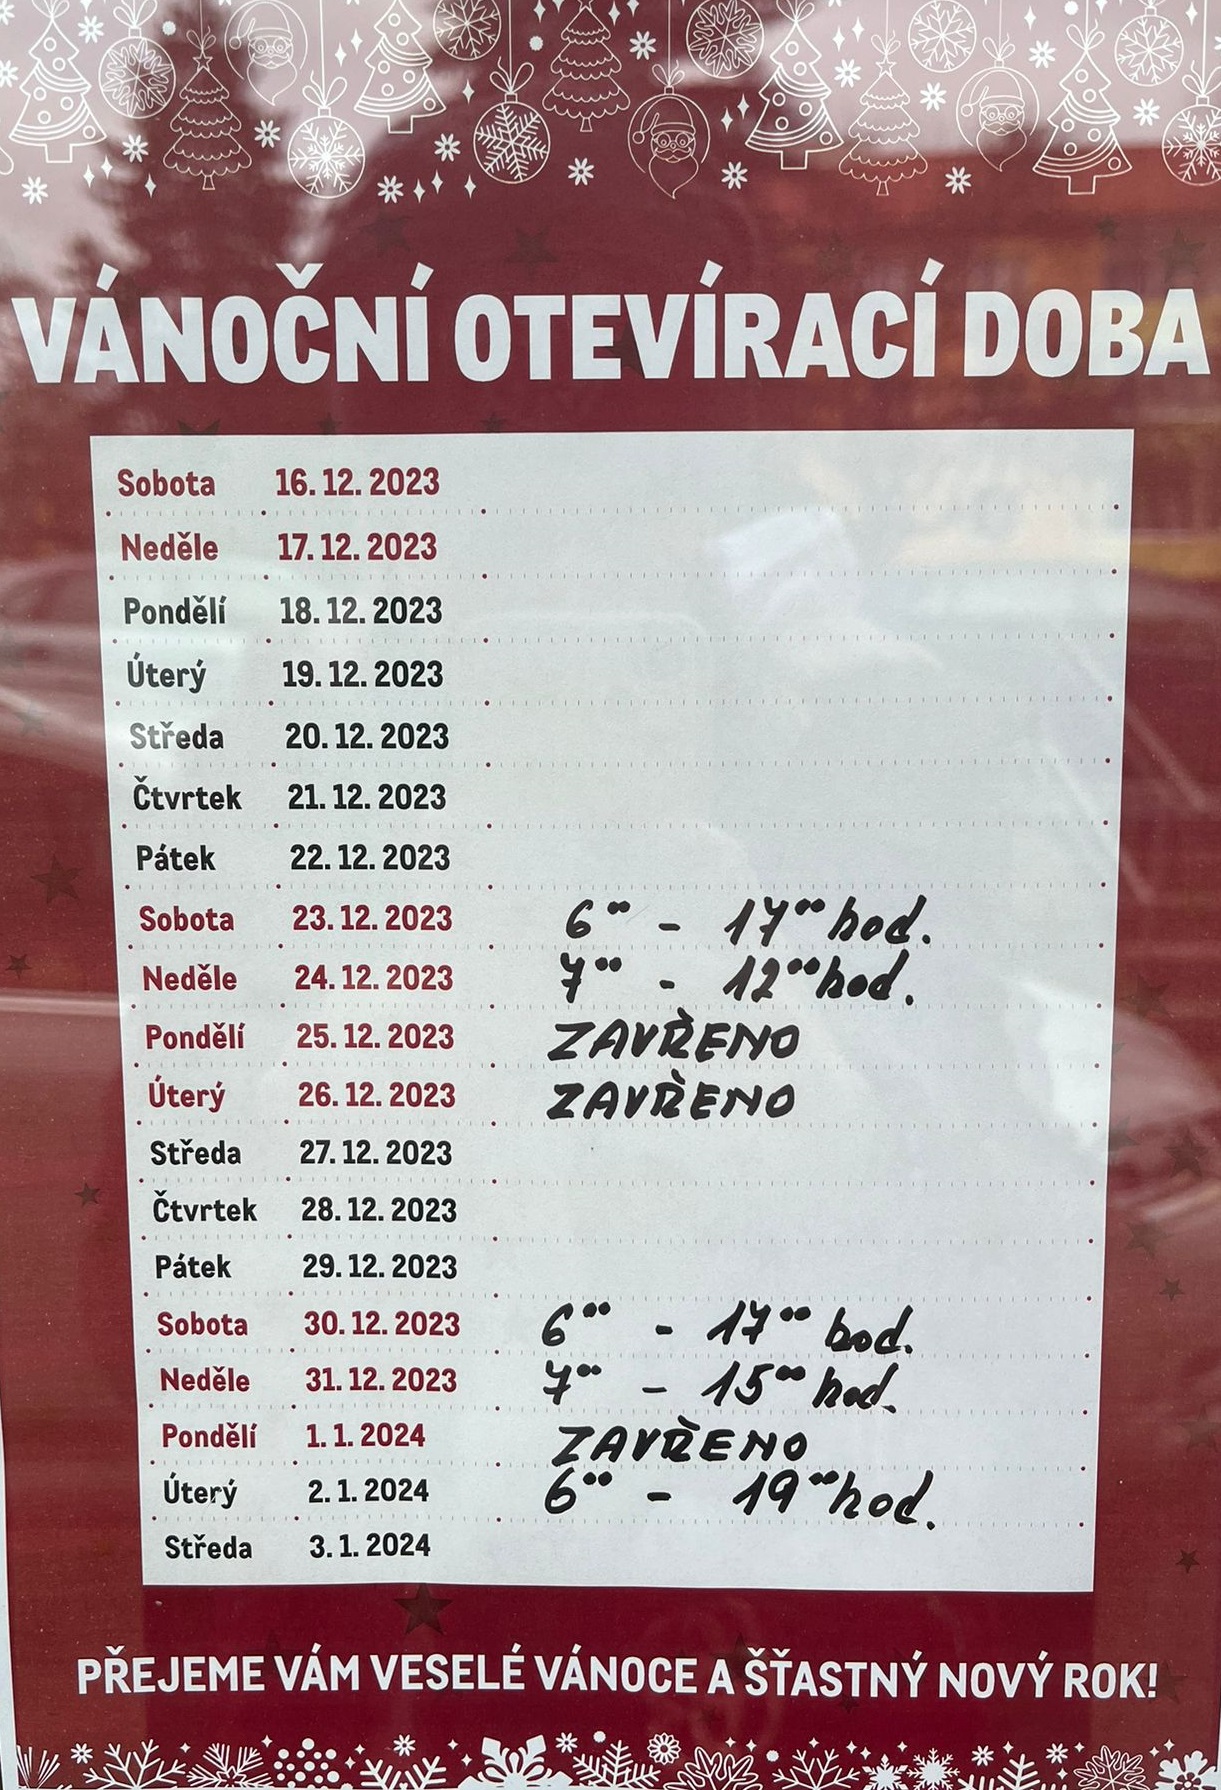 VÁNOČNÍ OTEVÍRACÍ DOBA
Sobota 16. 12. 2023
Neděle 17. 12. 2023
Pondělí 18. 12. 2023
Úterý 19. 12. 2023
Středa 20. 12. 2023
Čtvrtek 21. 12. 2023
Pátek 22. 12. 2023
Sobota 23. 12. 2023 6°° - 17°° hod.
Neděle 24. 12. 2023 7°° - 12°° hod.
Pondělí 25. 12. 2023 ZAVŘENO
Úterý 26. 12. 2023 ZAVŘENO
Středa 27. 12. 2023
Čtvrtek 28. 12. 2023
Pátek 29. 12. 2023
Sobota 30. 12. 2023 6°° - 17°° hod.
Neděle 31. 12. 2023 7°° - 15°° hod.
Pondělí 1. 1. 2024 ZAVŘENO
Úterý 2. 1. 2024 6°° - 19°° hod.
Středa 3. 1. 2024
PŘEJEME VÁM VESELÉ VÁNOCE A ŠŤASTNÝ NOVÝ ROK!